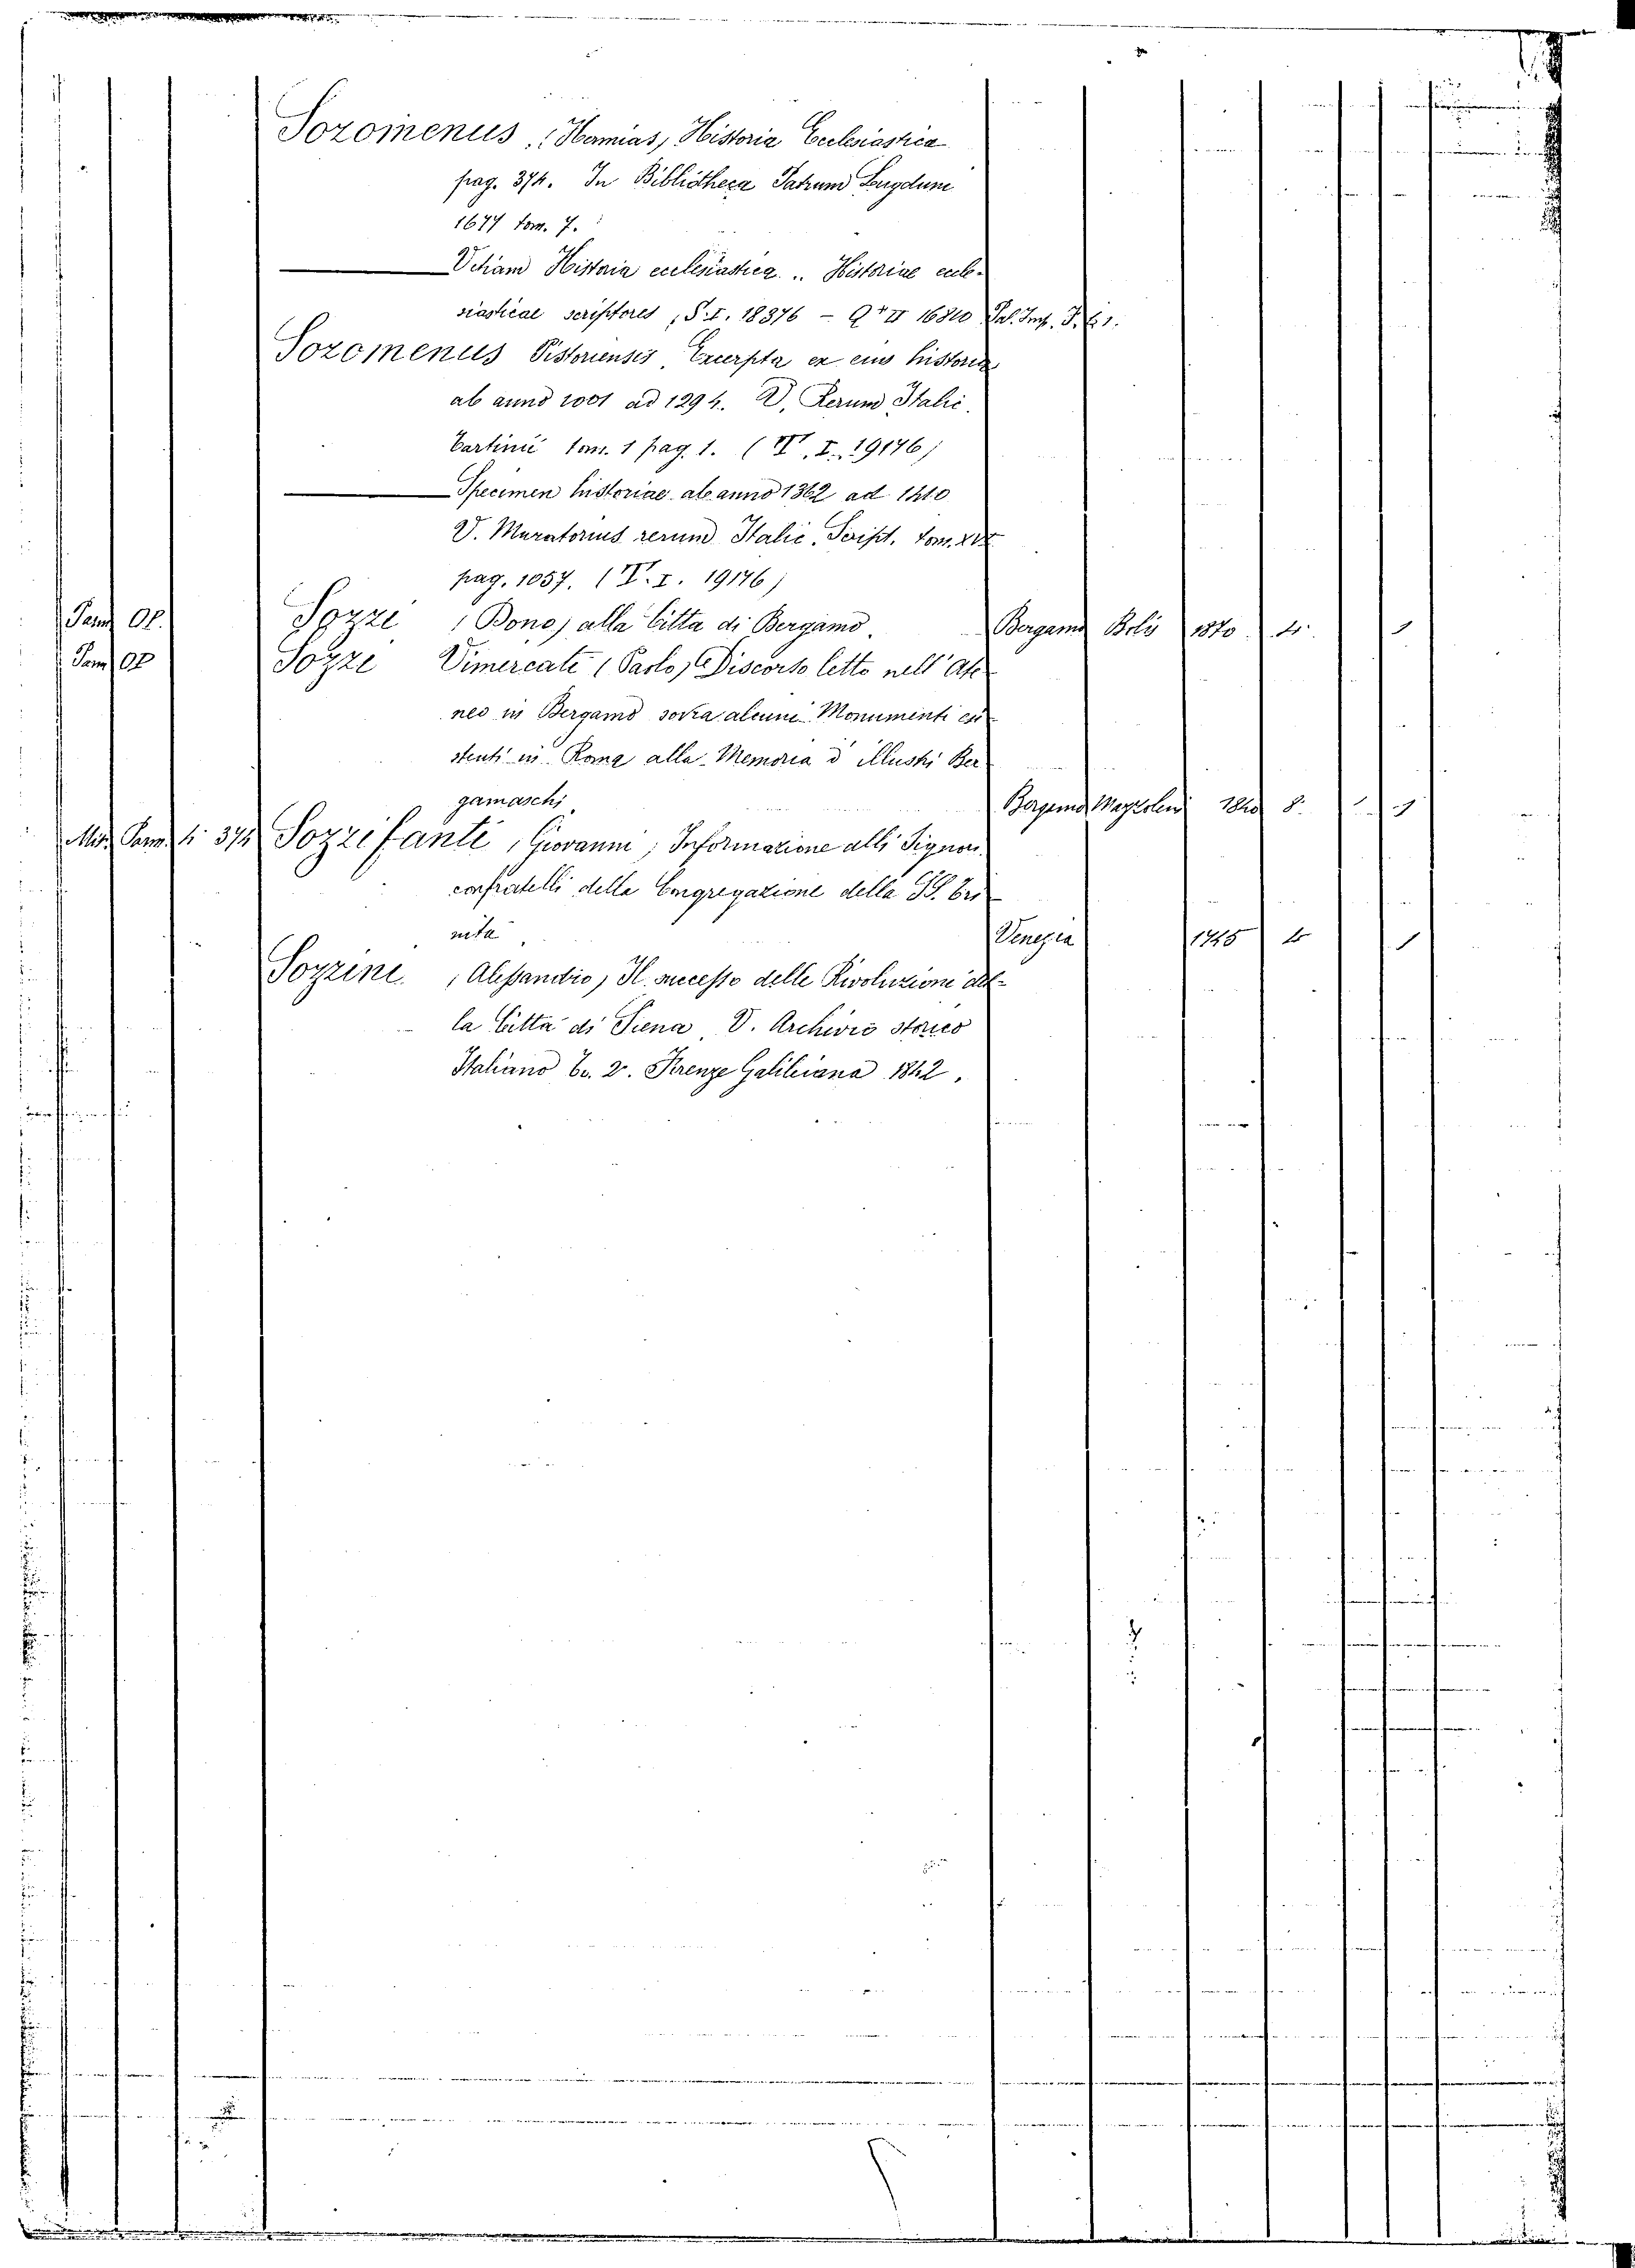 Sozomenus, (Hermias) Historia Ecclesiastica
pag. 374. In Bibliotheca Patrum Lugduni
1677 tom. 7.
V. etiam Historia ecclesiastica .. Historiae eccle-
siasticae scriptores, S. I. 18376 - Q + II 16810
Sozomenus Pistoriensis Excerpta ex eius historia
ab anno 1001 ad 1294. V. Rerum Italic.
tom. 1 pag. 1. ( I. 19176)
Specimen historiae ab anno 1362 ad 1410
V. Muratorius rerum Italic. Script. tom. XVI
pag. 1057. ( I. 19176)
Pam OP. Sozzi (Bono) alla Città di Bergamo. Bergamo Bolis 1870 4. 1
Pam OP Sozzi Vimercati (Paolo) Discorso letto nell'Ate-
neo in Bergamo sovra alcuni Monumenti esi-
stenti in Roma alla Memoria d'illustri Ber-
gamaschi Bergamo Mazzoleni 8. 1
Misc. Pam. 4: 374 Sozzifanti, Giovanni, Informazione alli Signori
confratelli della Congregazione della SS. Tri-
nità Venezia 1745 4 1
Sozzini (Alessandro) Il successo delle Rivoluzioni del-
la Città di Siena V. Archivio storico
Italiano To. 2. Firenze Galileiana 1842.